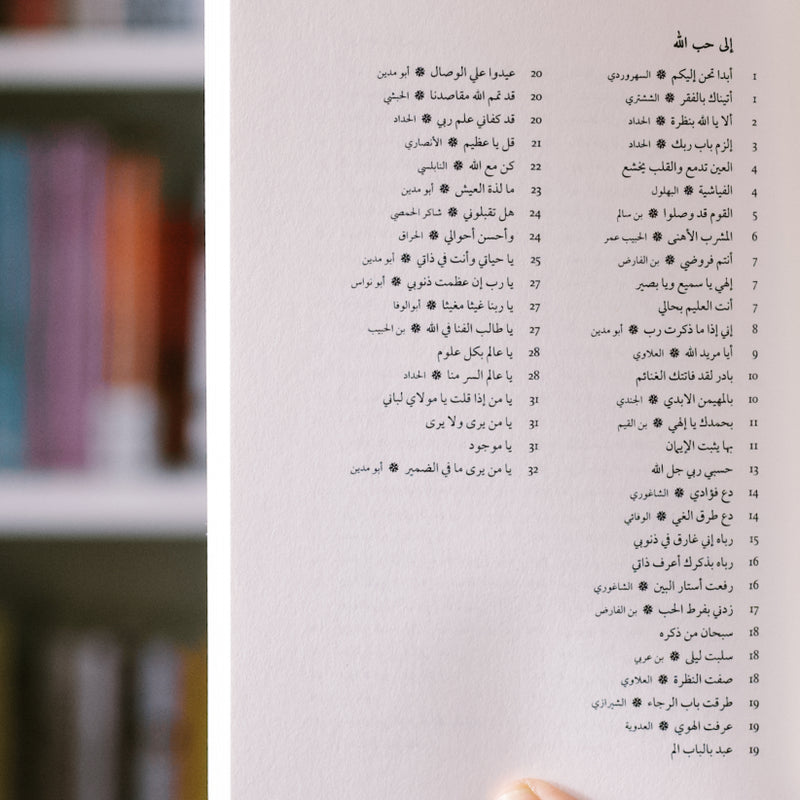 إلى حب الله
1 أبدا تحن إليكم ❋ السهروردي
1 أتيناك بالفقر ❋ الششتري
2 ألا يا الله بنظرة ❋ الحداد
3 إلزم باب ربك ❋ الحداد
4 العين تدمع والقلب يخشع
4 الفياشية ❋ البهلول
5 القوم قد وصلوا ❋ بن سالم
6 المشرب الأهنى ❋ الحبيب عمر
7 أنتم فروضي ❋ بن الفارض
7 إلهي يا سميع ويا بصير
7 أنت العليم بحالي
8 إني إذا ما ذكرت رب ❋ أبو مدين
9 أيا مريد الله ❋ العلاوي
10 بادر لقد فاتتك الغنائم
10 بالمهيمن الابدي ❋ الجندي
11 بحمدك يا إلهي ❋ بن القيم
11 بها يثبت الإيمان
13 حسبي ربي جل الله
14 دع فؤادي ❋ الشاغوري
14 دع طرق الغي ❋ الوفائي
15 رباه إني غارق في ذنوبي
16 رباه بذكرك أعرف ذاتي
16 رفعت أستار البين ❋ الشاغوري
17 زدني بفرط الحب ❋ بن الفارض
18 سبحان من ذكره
18 سلبت ليلى ❋ بن عربي
18 صفت النظرة ❋ العلاوي
19 طرقت باب الرجاء ❋ الشيرازي
19 عرفت الهوي ❋ العدوية
19 عبد بالباب الم
20 عيدوا علي الوصال ❋ أبو مدين
20 قد تمم الله مقاصدنا ❋ الحبشي
20 قد كفاني علم ربي ❋ الحداد
21 قل يا عظيم ❋ الأنصاري
22 كن مع الله ❋ النابلسي
23 ما لذة العيش ❋ أبو مدين
24 هل تقبلوني ❋ شاكر الحمصي
24 وأحسن أحوالي ❋ الحراق
25 يا حياتي وأنت في ذاتي ❋ أبو مدين
27 يا رب إن عظمت ذنوبي ❋ أبو نواس
27 يا ربنا غيثا مغيثا ❋ أبو الوفا
27 يا طالب الفنا في الله ❋ بن الحبيب
28 يا عالم بكل علوم
28 يا عالم السر منا ❋ الحداد
31 يا من إذا قلت يا مولاي لباني
31 يا من يرى ولا يرى
31 يا موجود
32 يا من يرى ما في الضمير ❋ أبو مدين